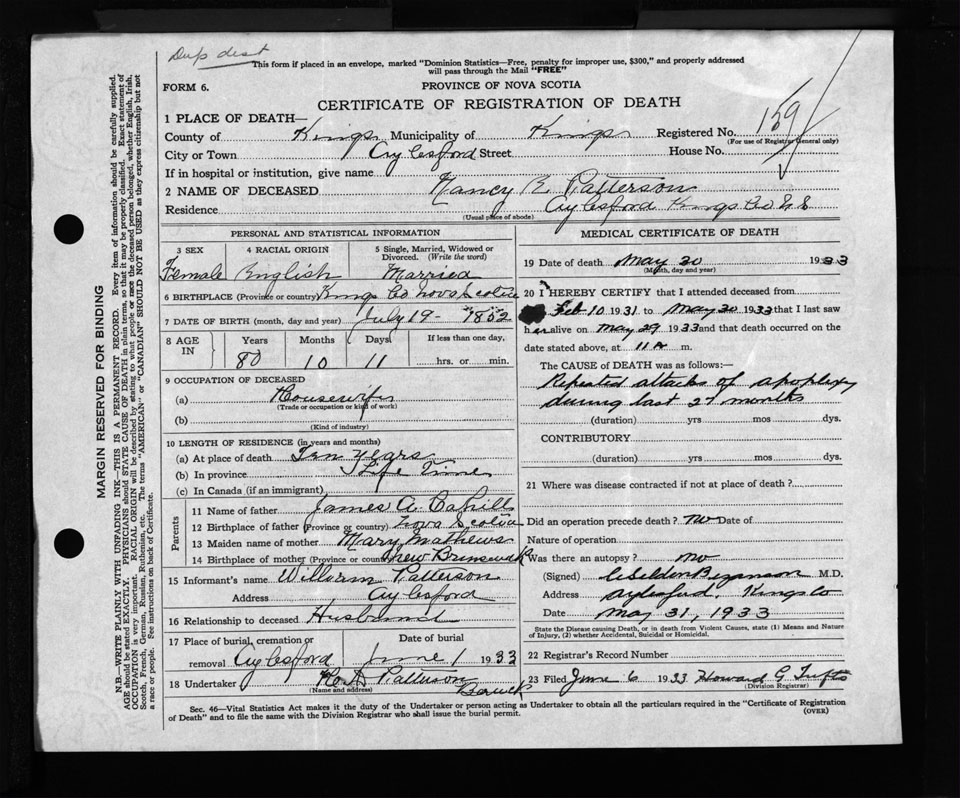 Dup dist
This form if placed in an envelope, marked "Dominion Statistics—Free, penalty for improper use, $300," and properly addressed
will pass through the Mail "FREE"
FORM 6.
PROVINCE OF NOVA SCOTIA
CERTIFICATE OF REGISTRATION OF DEATH
1 PLACE OF DEATH—
County of Kings Municipality of Kings Registered No. 159
(For use of Registrar General only)
City or Town Aylesford Street House No.
If in hospital or institution, give name
2 NAME OF DECEASED Nancy E Patterson
Residence Aylesford Kings Co N S
(Usual place of abode)
PERSONAL AND STATISTICAL INFORMATION
3 SEX 4 RACIAL ORIGIN 5 Single, Married, Widowed or
Divorced. (Write the word)
Female English Married
6 BIRTHPLACE (Province or country) Kings Co Nova Scotia
7 DATE OF BIRTH (month, day and year) July 19 - 1852
8 AGE IN Years Months Days If less than one day,
80 10 11 hrs. or min.
9 OCCUPATION OF DECEASED
(a) Housewife
(Trade or occupation or kind of work)
(b)
(Kind of industry)
10 LENGTH OF RESIDENCE (in years and months)
(a) At place of death Ten Years
(b) In province Life Time
(c) In Canada (if an immigrant)
Parents
11 Name of father James A Cahill
12 Birthplace of father (Province or country) Nova Scotia
13 Maiden name of mother Mary Mathews
14 Birthplace of mother (Province or country) New Brunswick
15 Informant's name William Patterson
Address Aylesford
16 Relationship to deceased Husband
17 Place of burial, cremation or Date of burial
removal Aylesford June 1 1933
18 Undertaker Patterson
(Name and address) Berwick
MEDICAL CERTIFICATE OF DEATH
19 Date of death May 30 1933
(Month, day and year)
20 I HEREBY CERTIFY that I attended deceased from
Feb 10 1931 to May 30 1933 that I last saw
her alive on May 29 1933 and that death occurred on the
date stated above, at 11 A m.
The CAUSE OF DEATH was as follows:—
Repeated attacks of apoplexy
during last 27 months
(duration) yrs mos dys.
CONTRIBUTORY
(duration) yrs mos dys.
21 Where was disease contracted if not at place of death?
Did an operation precede death? No Date of
Nature of operation
Was there an autopsy? No
(Signed) Bezanson M.D.
Address Aylesford, Kings Co
Date May 31, 1933
State the Disease causing Death, or in death from Violent Causes, state (1) Means and Nature
of Injury, (2) whether Accidental, Suicidal or Homicidal.
22 Registrar's Record Number
23 Filed June 6 1933 Howard G Tufts
(Division Registrar)
Sec. 46—Vital Statistics Act makes it the duty of the Undertaker or person acting as Undertaker to obtain all the particulars required in the "Certificate of Registration
of Death" and to file the same with the Division Registrar who shall issue the burial permit.
(OVER)
MARGIN RESERVED FOR BINDING
N.B.—WRITE PLAINLY WITH UNFADING INK—THIS IS A PERMANENT RECORD. Every item of information should be carefully supplied.
AGE should be stated EXACTLY. PHYSICIANS should STATE CAUSE OF DEATH in plain terms, so that it may be properly classified. Exact statement of
OCCUPATION is very important. RACIAL ORIGIN will be described by stating to what people or race the deceased person belonged, whether English, Irish,
Scotch, French, German, Russian, Ruthenian, etc. The terms "AMERICAN" or "CANADIAN" SHOULD NOT BE USED as they express citizenship but not
a race or people. See instructions on back of Certificate.